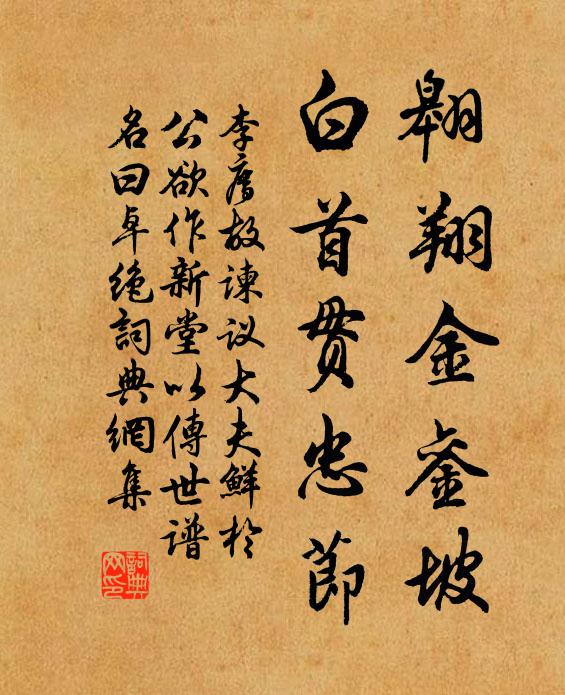 翱翔金銮坡
白首贯忠節
李廌故谏议大夫鲜於
公欲作新堂以傳世谱
名曰卓绝詞典網集
詞典网印